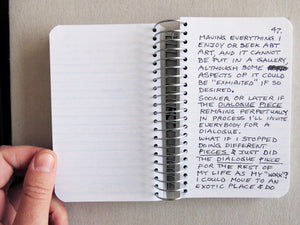 47.
MAKING EVERYTHING I
ENJOY OR SEEK ABT
ART, AND IT CANNOT
BE PUT IN A GALLERY,
ALTHOUGH SOME
ASPECTS OF IT COULD
BE "EXHIBITED" IF SO
DESIRED.
SOONER OR LATER IF
THE DIALOGUE PIECE
REMAINS PERPETUALLY
IN PROCESS I'LL INVITE
EVERYBODY FOR A
DIALOGUE.
WHAT IF I STOPPED
DOING DIFFERENT
PIECES & JUST DID
THE DIALOGUE PIECE
FOR THE REST OF
MY LIFE AS MY "WORK"?
I COULD MOVE TO AN
EXOTIC PLACE & DO